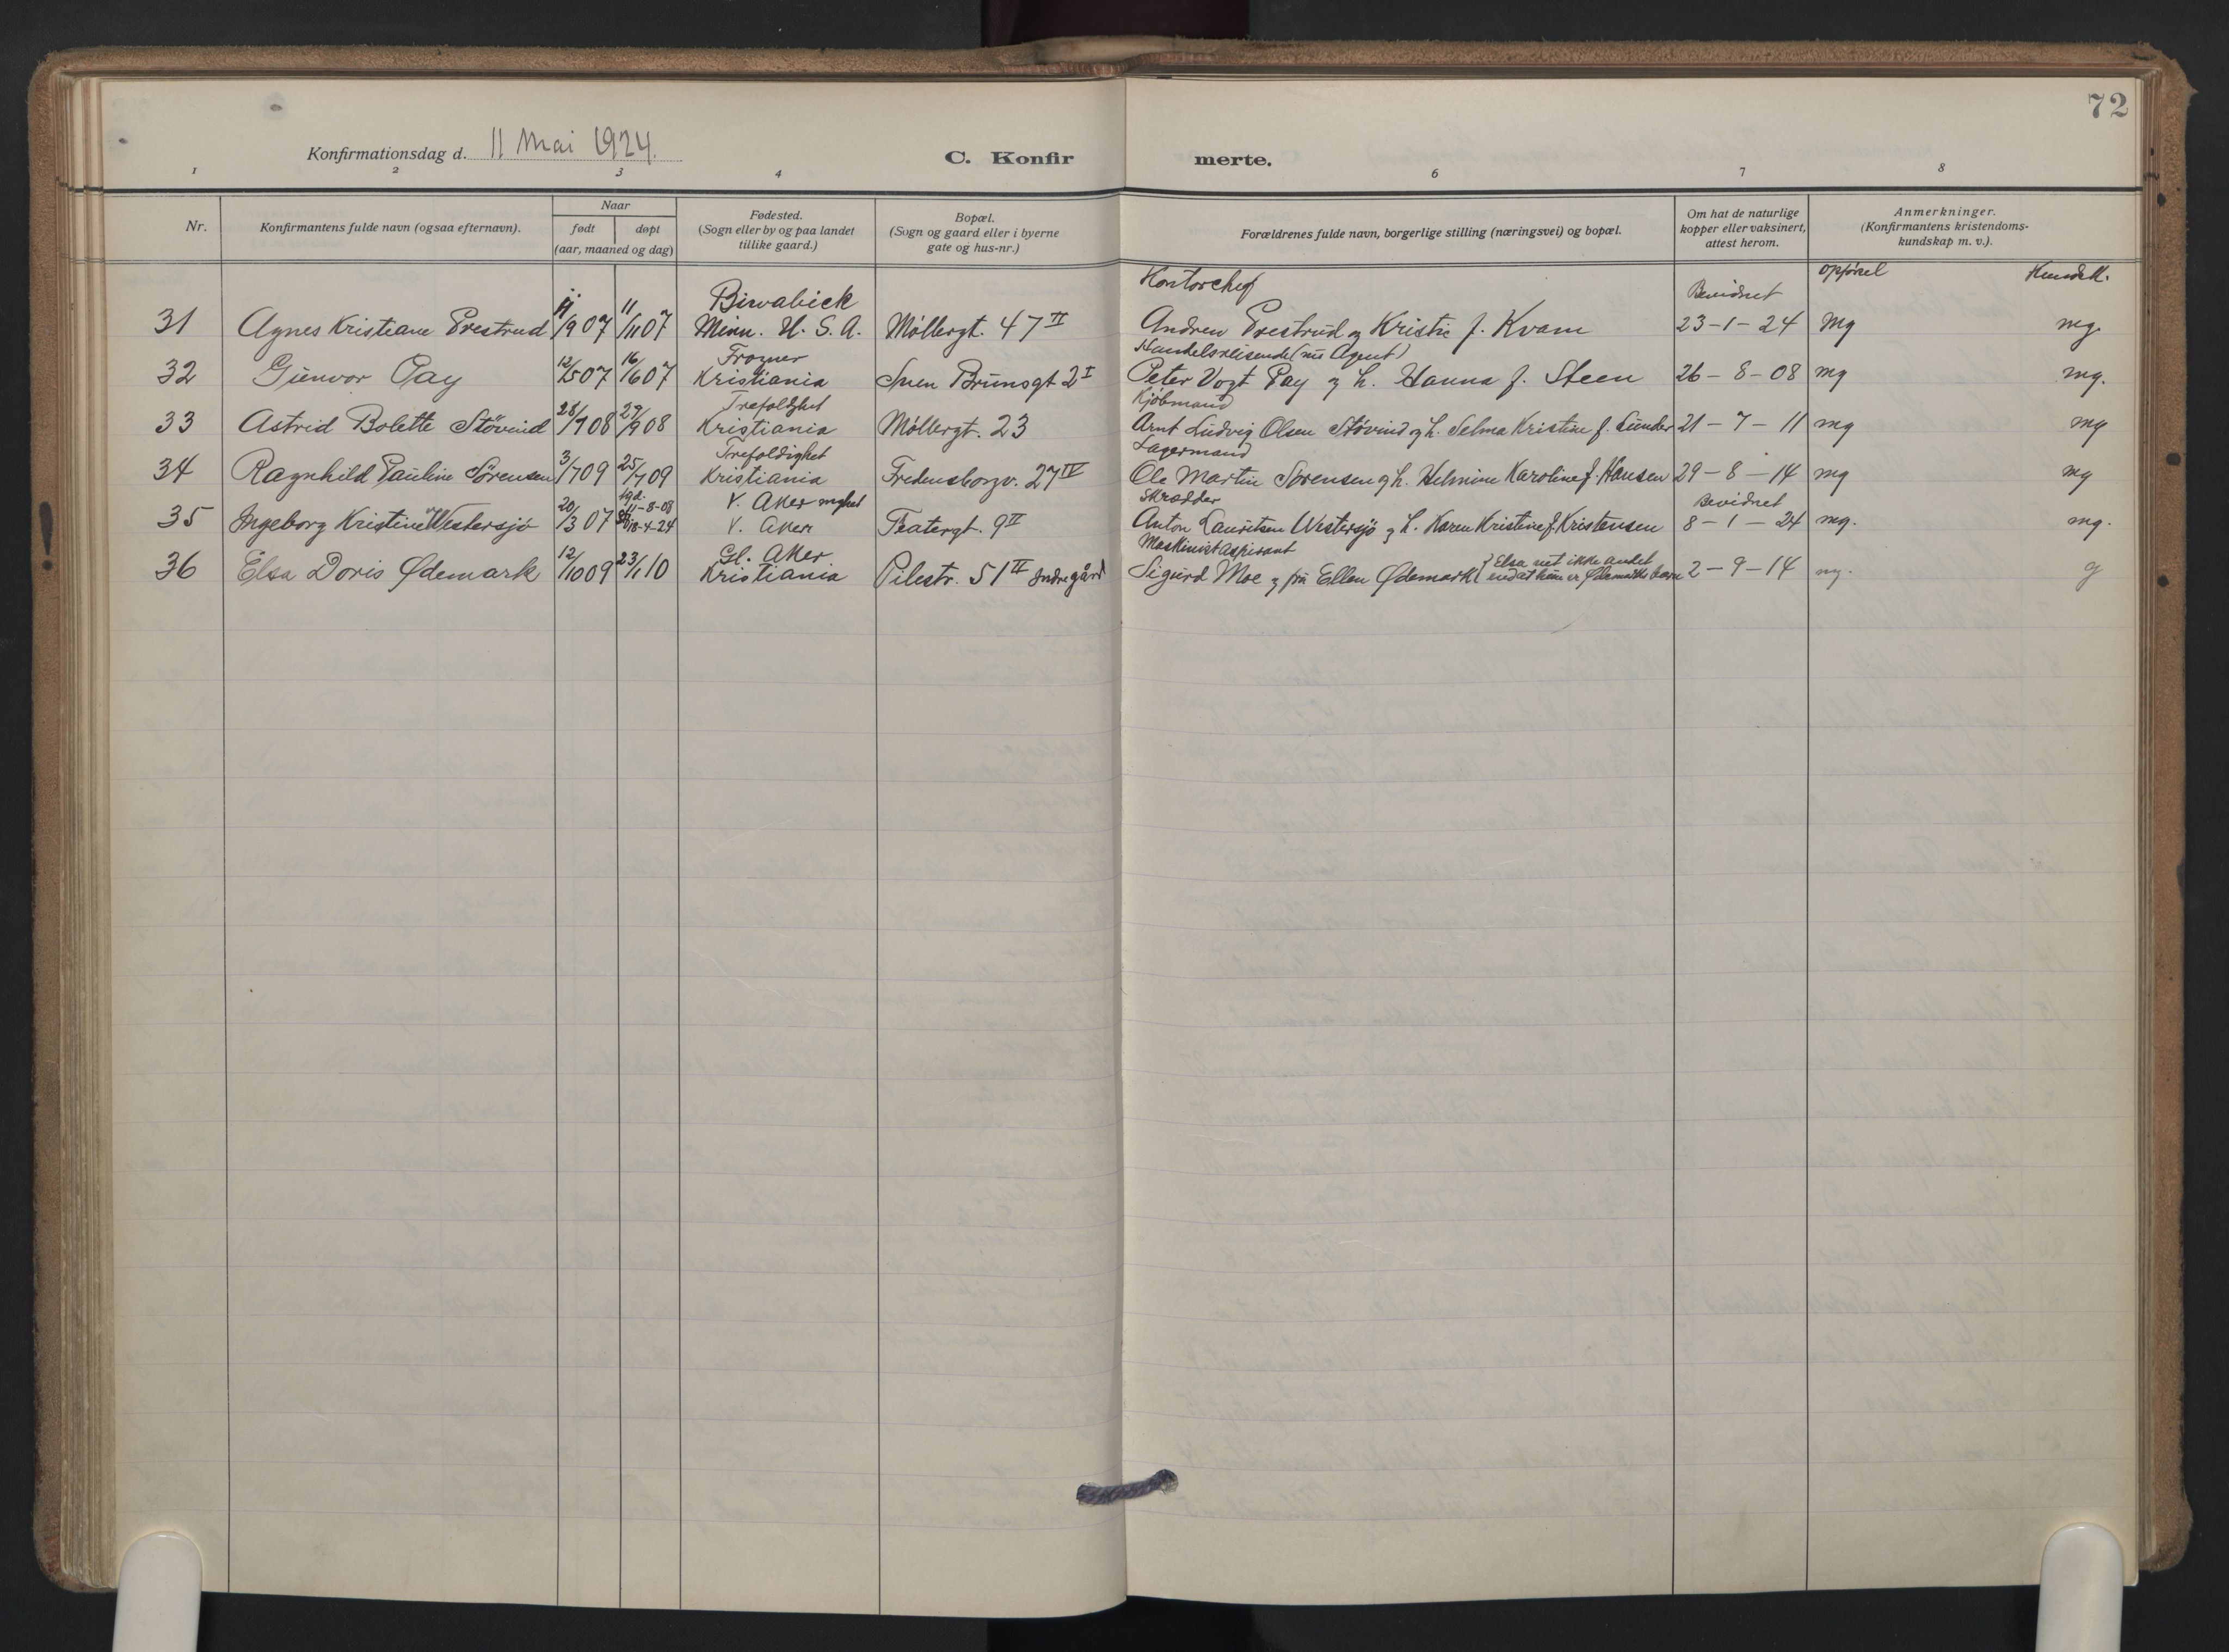 72
Konfirmationsdag d. 11 Mai 1924.
C. Konfirmerte.
1 2 3 4 6 7 8
Nr. Konfirmantens fulde navn (ogsaa efternavn). Naar født døpt (aar, maaned og dag) Fødested. (Sogn eller by og paa landet tillike gaard.) Bopæl. (Sogn og gaard eller i byerne gate og hus-nr.) Forældrenes fulde navn, borgerlige stilling (næringsvei) og bopæl. Om hat de naturlige kopper eller vaksinert, attest herom. Anmerkninger. (Konfirmantens kristendoms-kundskap m. v.).
Biwabick Kontorchef Bevidnet opførsel Kundsk.
31 Agnes Kristiane Prestrud 11/9 07 11/11 07 Minn. U. S. A. Møllergt. 47 II Andrew Prestrud og Kristie f. Kvam 23-1-24 mg mg.
Frogner Handelsreisende (nu Agent)
32 Gunvor Pay 12/5 07 16/6 07 Kristiania Sven Brunsgt 2 I Peter Vogt Pay og h. Hanna f. Steen 26-8-08 mg mg.
Trefoldighet Kjøbmand
33 Astrid Bolette Støvind 28/7 08 29/9 08 Kristiania Møllergt. 23 Arnt Ludvig Olsen Støvind og h. Selma Kristine f. Lunder 21-7-11 mg mg
Trefoldighet Lagermand
34 Ragnhild Pauline Sørensen 3/7 09 25/7 09 Kristiania Fredensborgv. 27 IV Ole Martin Sørensen og h. Helmine Karoline f. Hansen 29-8-14 mg mg
V. Aker Skrædder Bevidnet
35 Ingeborg Kristine Westersjø 20/3 07 11-8-08 18-4-24 V. Aker Teatergt. 9 II Anton Lauritsen Westersjø og h. Karen Kristine f. Kristensen 8-1-24 mg. mg.
Gl. Aker Maskinist Aspirant
36 Elsa Doris Ødemark 12/10 09 23/1 10 Kristiania Pilestr. 51 II Indregård Sigurd Moe og fru Ellen Ødemark { Elsa vet ikke andet end at hun er Ødemarks barn 2-9-14 mg. g